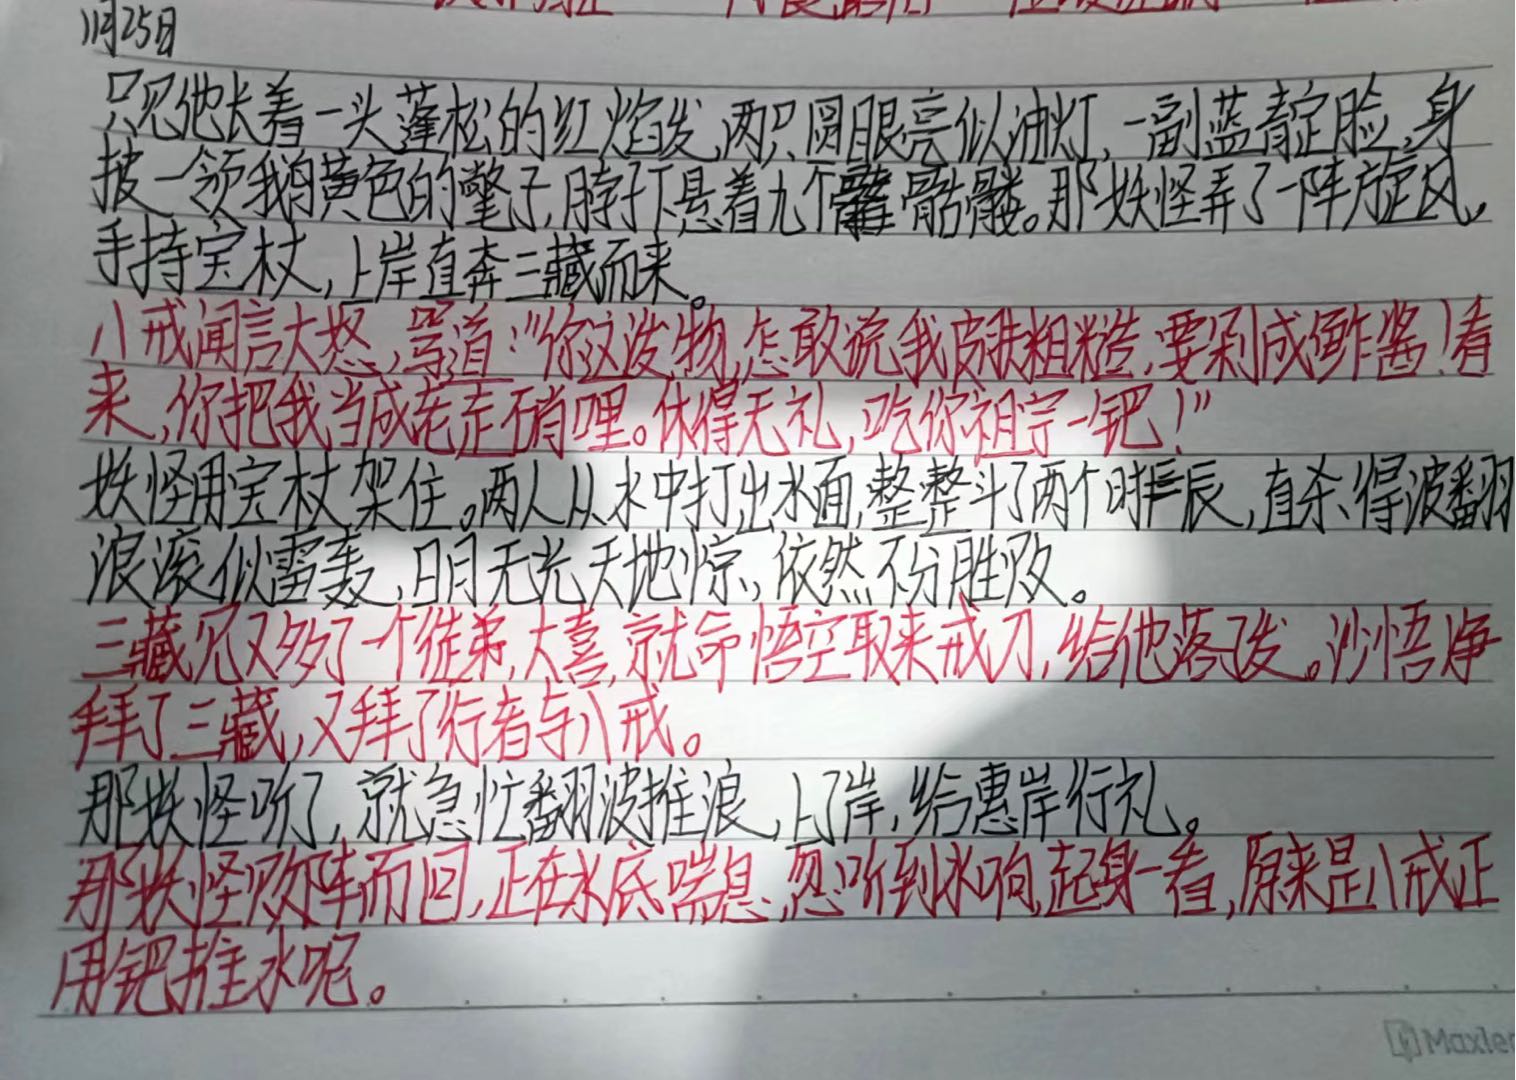 11月25日
只见他长着一头蓬松的红焰发,两只圆眼亮似油灯,一副蓝靛脸,身
披一领鹅黄色的氅子,脖子下悬着九个骷髅。那妖怪弄了一阵旋风,
手持宝杖,上岸直奔三藏而来。
八戒闻言大怒,骂道:"你这泼物,怎敢说我皮肤粗糙,要剁成鲊酱!看
来,你把我当成老走硝哩。休得无礼,吃你祖宗一钯!"
妖怪用宝杖架住。两人从水中打出水面,整整斗了两个时辰,直杀得波翻
浪滚似雷轰,日月无光天地惊,依然不分胜败。
三藏见又多了一个徒弟,大喜,就命悟空取来戒刀,给他落了发。沙悟净
拜了三藏,又拜了行者与八戒。
那妖怪听了,就急忙翻波推浪,上了岸,给惠岸行礼。
那妖怪败阵而回,正在水底喘息,忽听到水响,起身一看,原来是八戒正
用钯推水呢。
Maxle